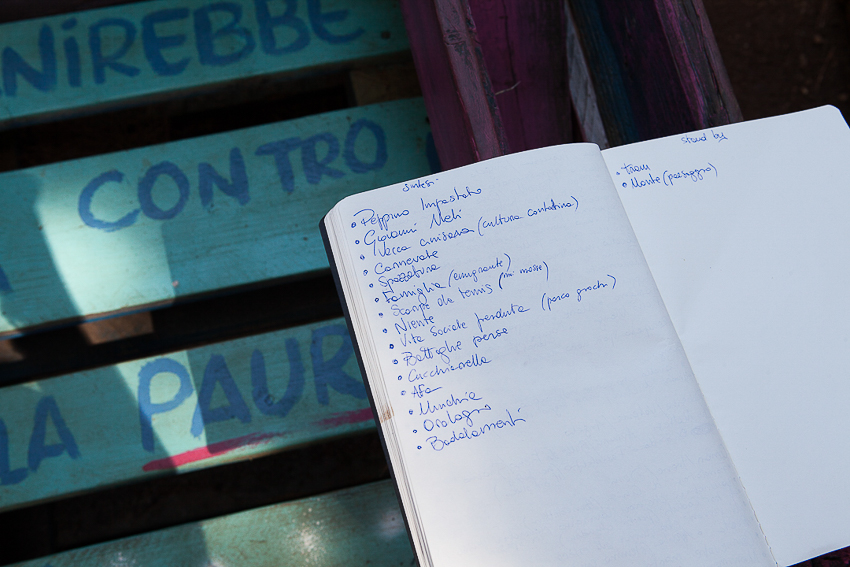 NIREBBE
CONTRO
LA PAUR
Sintesi
• Peppino Impastato
• Giovanni Meli
• Vacca cinisara (cultura contadina)
• Carnevale
• Spazzatura
• Famiglia (emigrante)
• Scarpe da tennis (mi mosse)
• Niente
• Vita sociale perduta (parco giochi)
• Battaglie perse
• Cucchiarella
• Afa
• Minchia
• Orologio
• Badalamenti
stand by
• tram
• Monte (paesaggio)